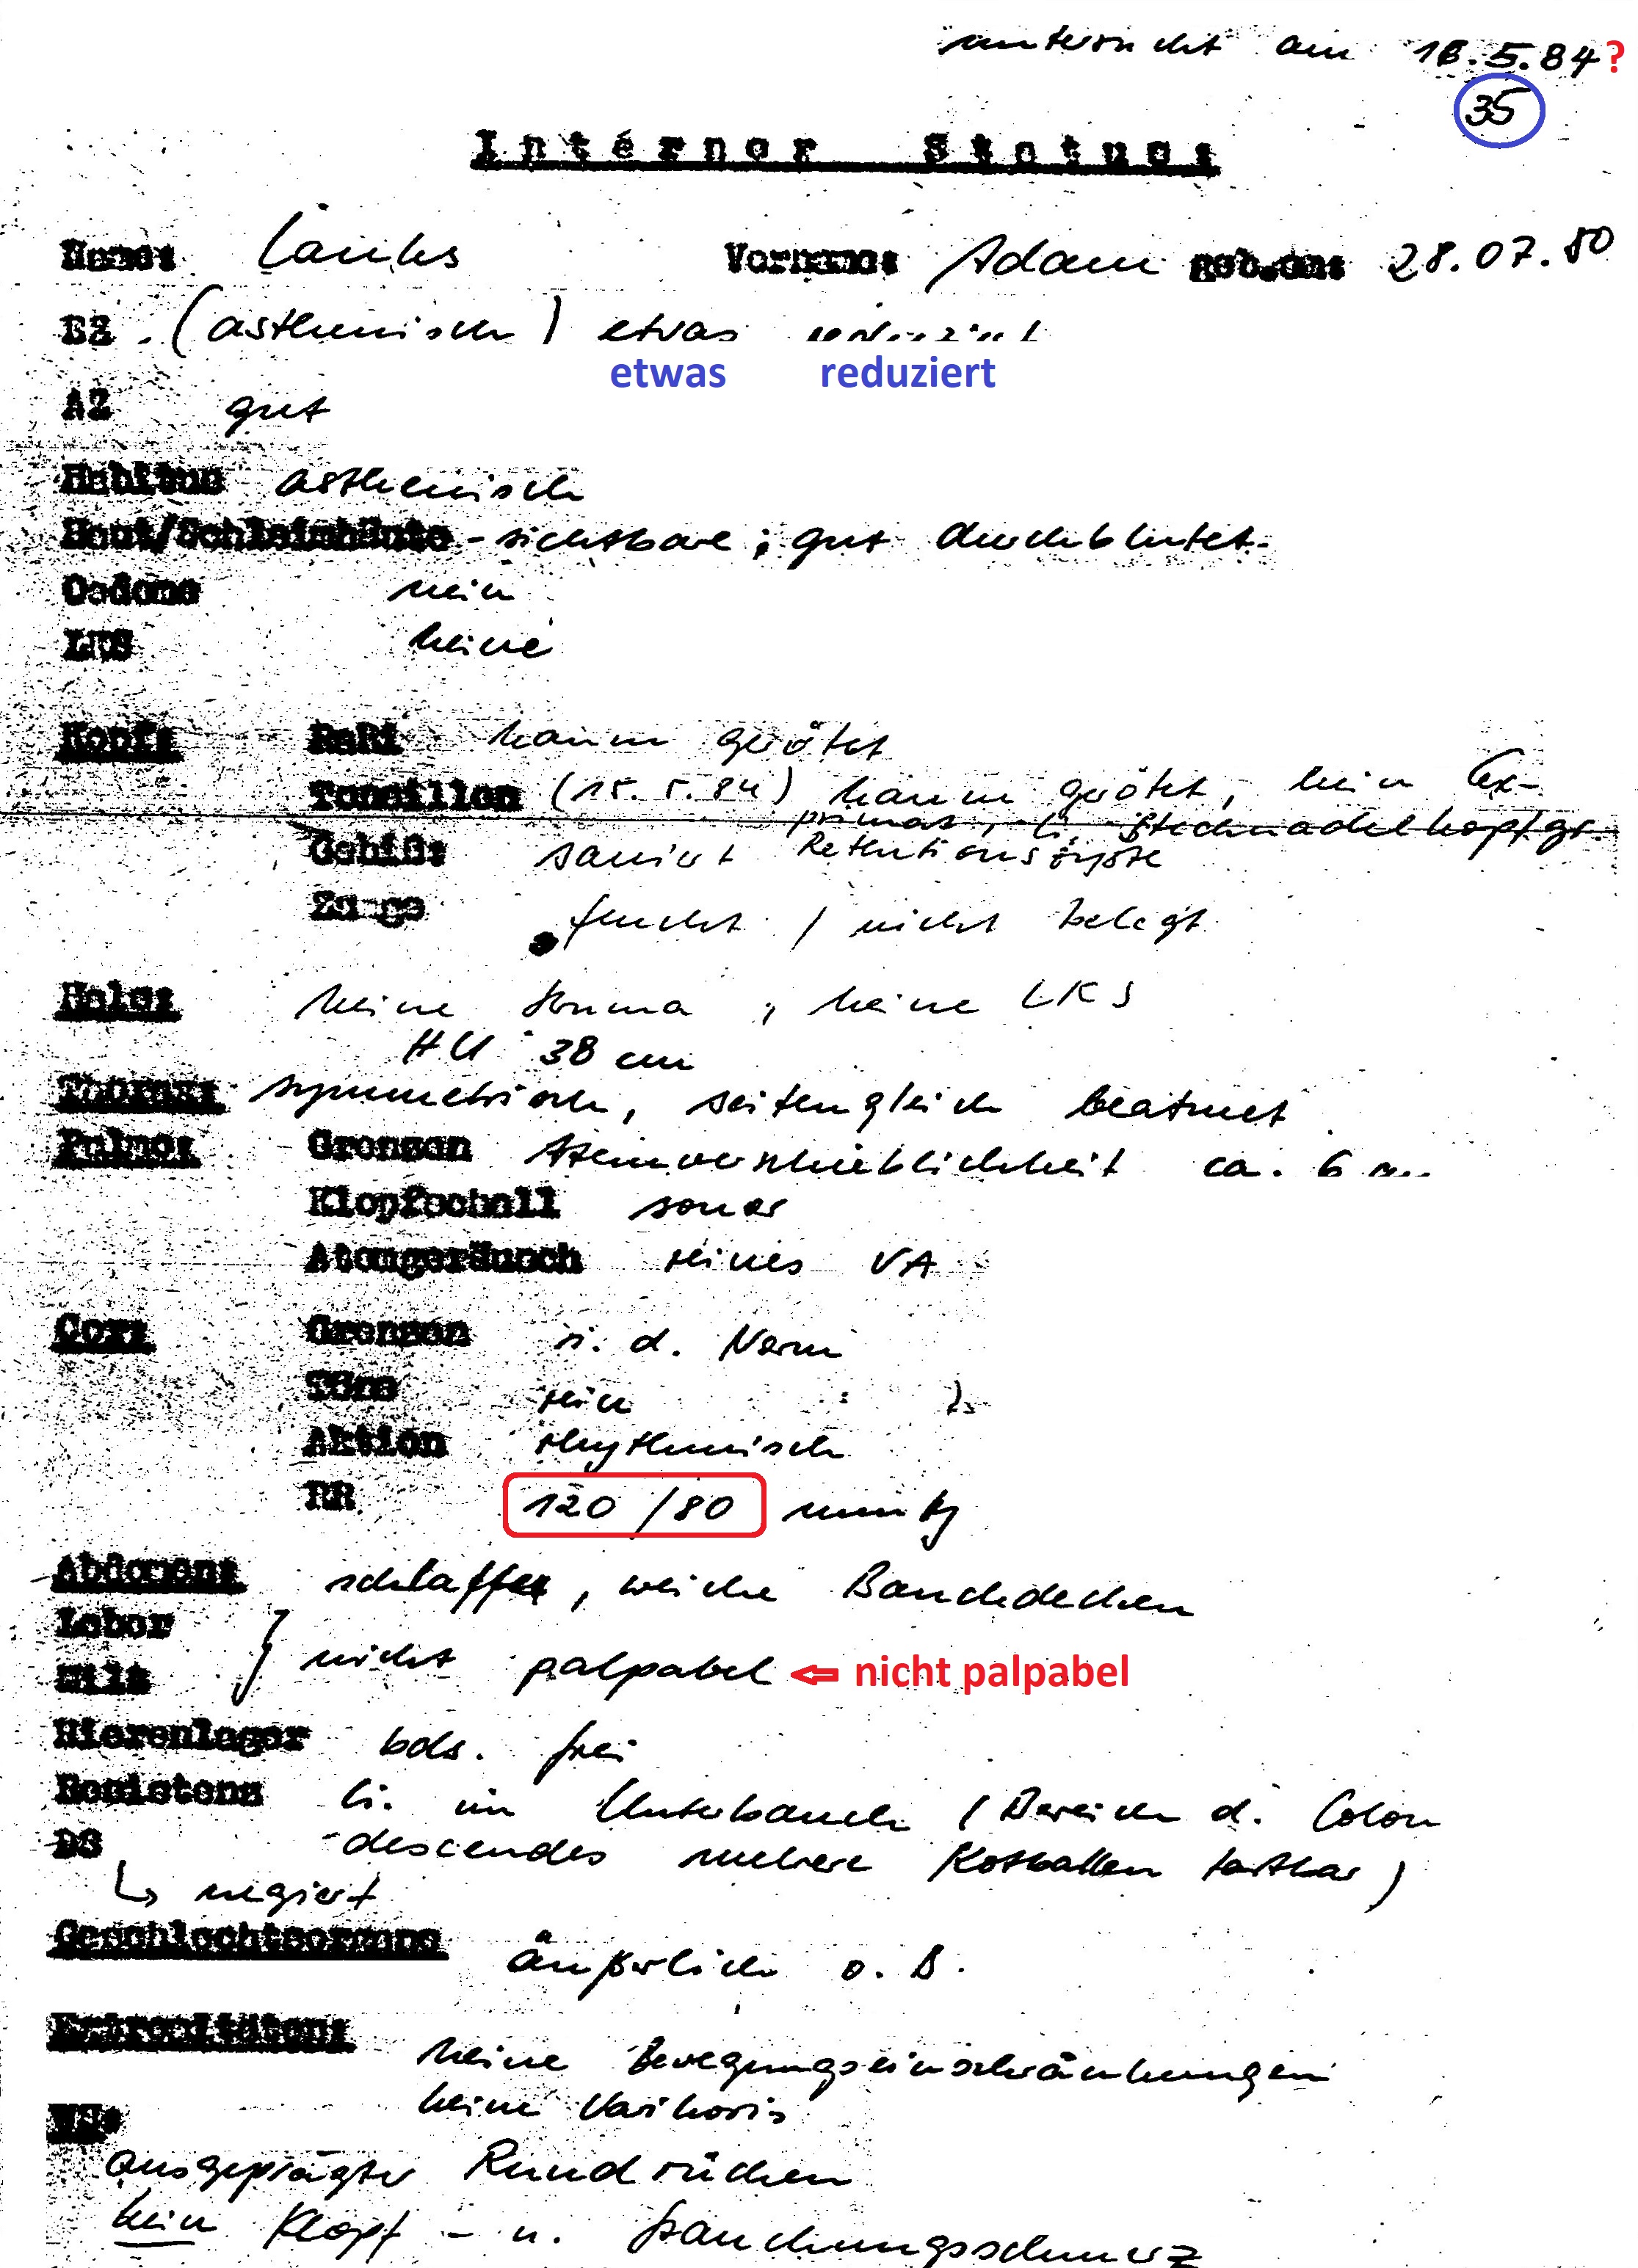 untersucht am 18.5.84?
35
Interner Status:
Name: Lauks Vorname: Adam geb.am: 28.07.50
EZ (asthenisch) etwas reduziert
etwas reduziert
AZ gut
Habitus asthenisch
Haut/Schleimhäute - sichtbare; gut durchblutet.
Oedeme nein
LKS keine
Kopf: RaRi kaum gerötet
Tonsillen (15.5.84) kaum gerötet, kein Ex-
primat, li. stecknadelkopfgr.
Gebiß: saniert Retentionszyste
Zunge feucht / nicht belegt
Hals: keine Struma, keine LKS
HU 38 cm
Thorax: symmetrisch, seitengleich beatmet
Pulmo: Grenzen Atemverschieblichkeit ca. 6
Klopfschall sonor
Atemgeräusch reines VA
Cor: Grenzen i. d. Norm
Töne rein
Aktion rhythmisch
RR 120/80 mmHg
Abdomen: schlaffe, weiche Bauchdecken
Leber
Milz } nicht palpabel ⇐ nicht palpabel
Nierenlager bds. frei
Resistenz li. im Unterbauch (Bereich d. Colon
DS descendes mehrere Kotballen tastbar)
↳ negiert
Geschlechtsorgane äußerlich o. B.
Extremitäten: keine Bewegungseinschränkungen
keine Varikosis
WS:
ausgeprägter Rundrücken
kein Klopf- u. Stauchungsschmerz